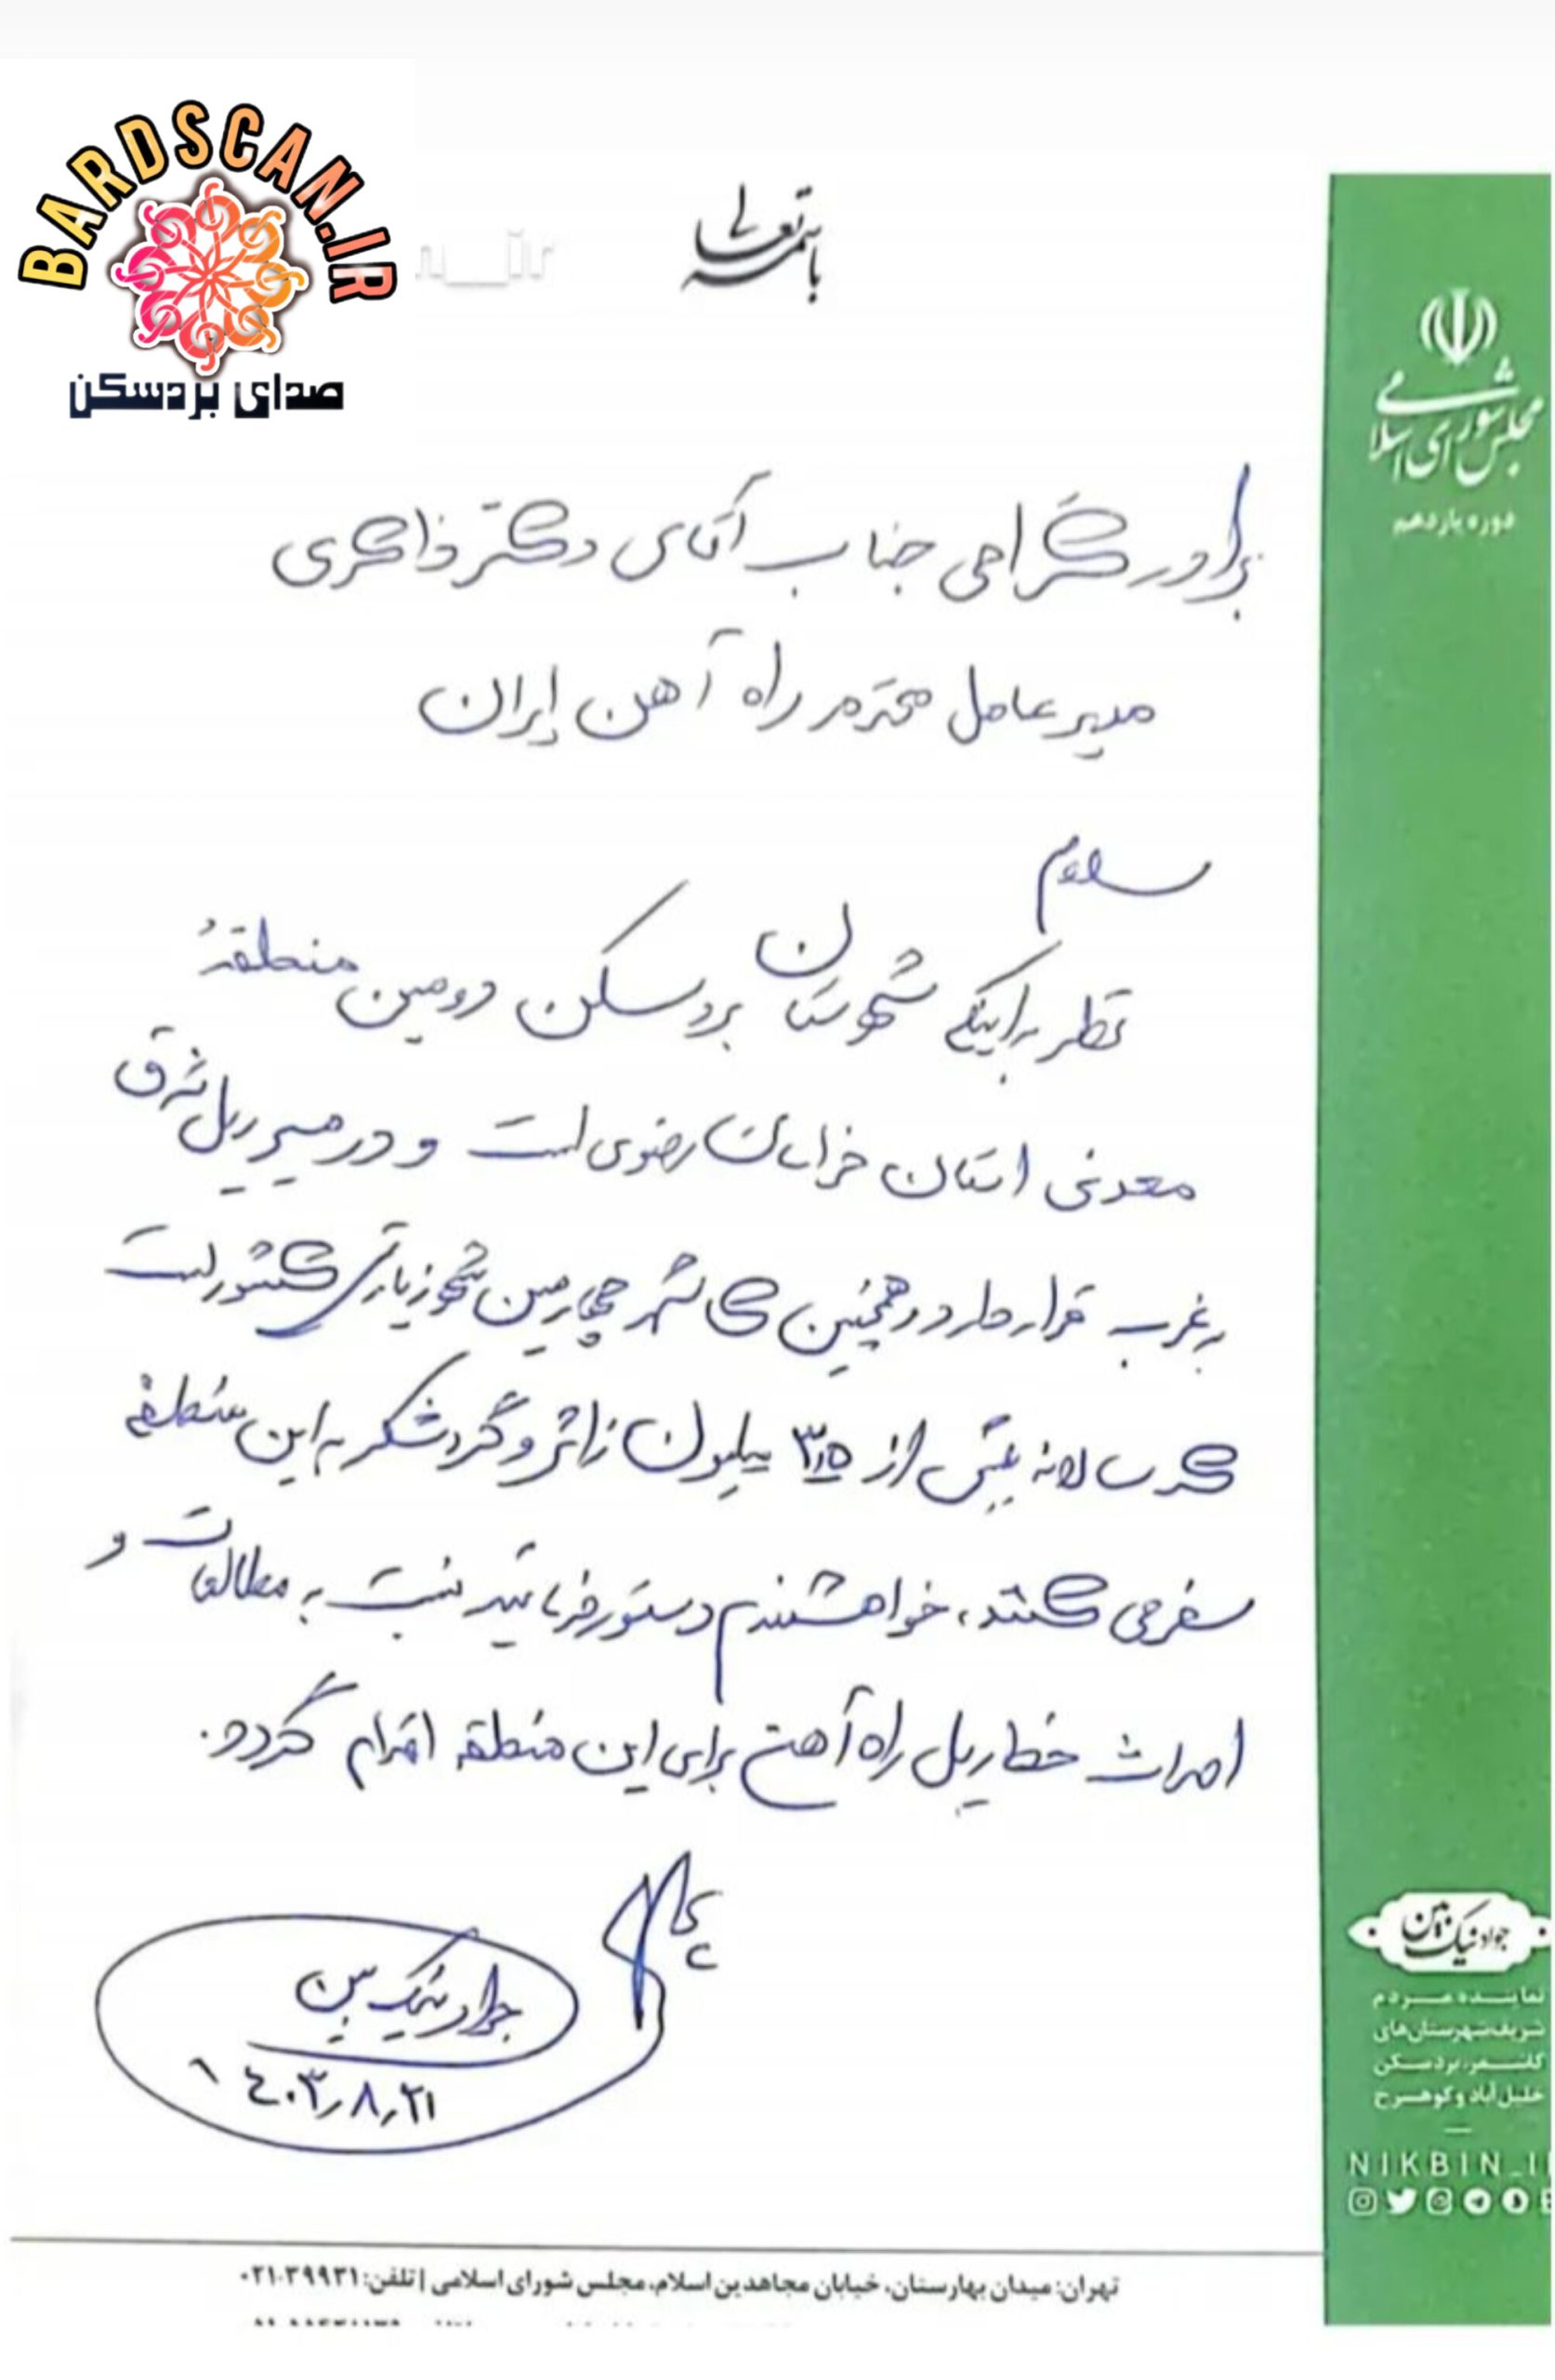 BARDSCAN.IR
صدای بردسکن
n__ir
باسمه تعالی
مجلس شورای اسلامی
دوره یازدهم
برادر گرامی جناب آقای دکتر ذاکری
مدیر عامل محترم راه آهن ایران
سلام
نظر به اینکه شهرستان بردسکن دومین منطقهٔ
معدنی استان خراسان رضوی است و در مسیر ریل شرق
به غرب قرار دارد و همچنین کاشمر چهارمین شهر زیارتی کشور است
که سالانه بیش از ۳٫۵ میلیون زائر و گردشگر به این منطقه
سفر می کنند، خواهشمندم دستور فرمائید نسبت به مطالعات و
احداث خط ریل راه آهن برای این منطقه اقدام گردد.
جواد نیک بین
۱۴۰۳٫۸٫۲۱
جواد نیک بین
نماینده مردم
شریف شهرستان‌های
کاشمر، بردسکن
خلیل آباد و کوهسرخ
NIKBIN_I
تهران: میدان بهارستان، خیابان مجاهدین اسلام، مجلس شورای اسلامی | تلفن: ۰۲۱-۳۹۹۳۱